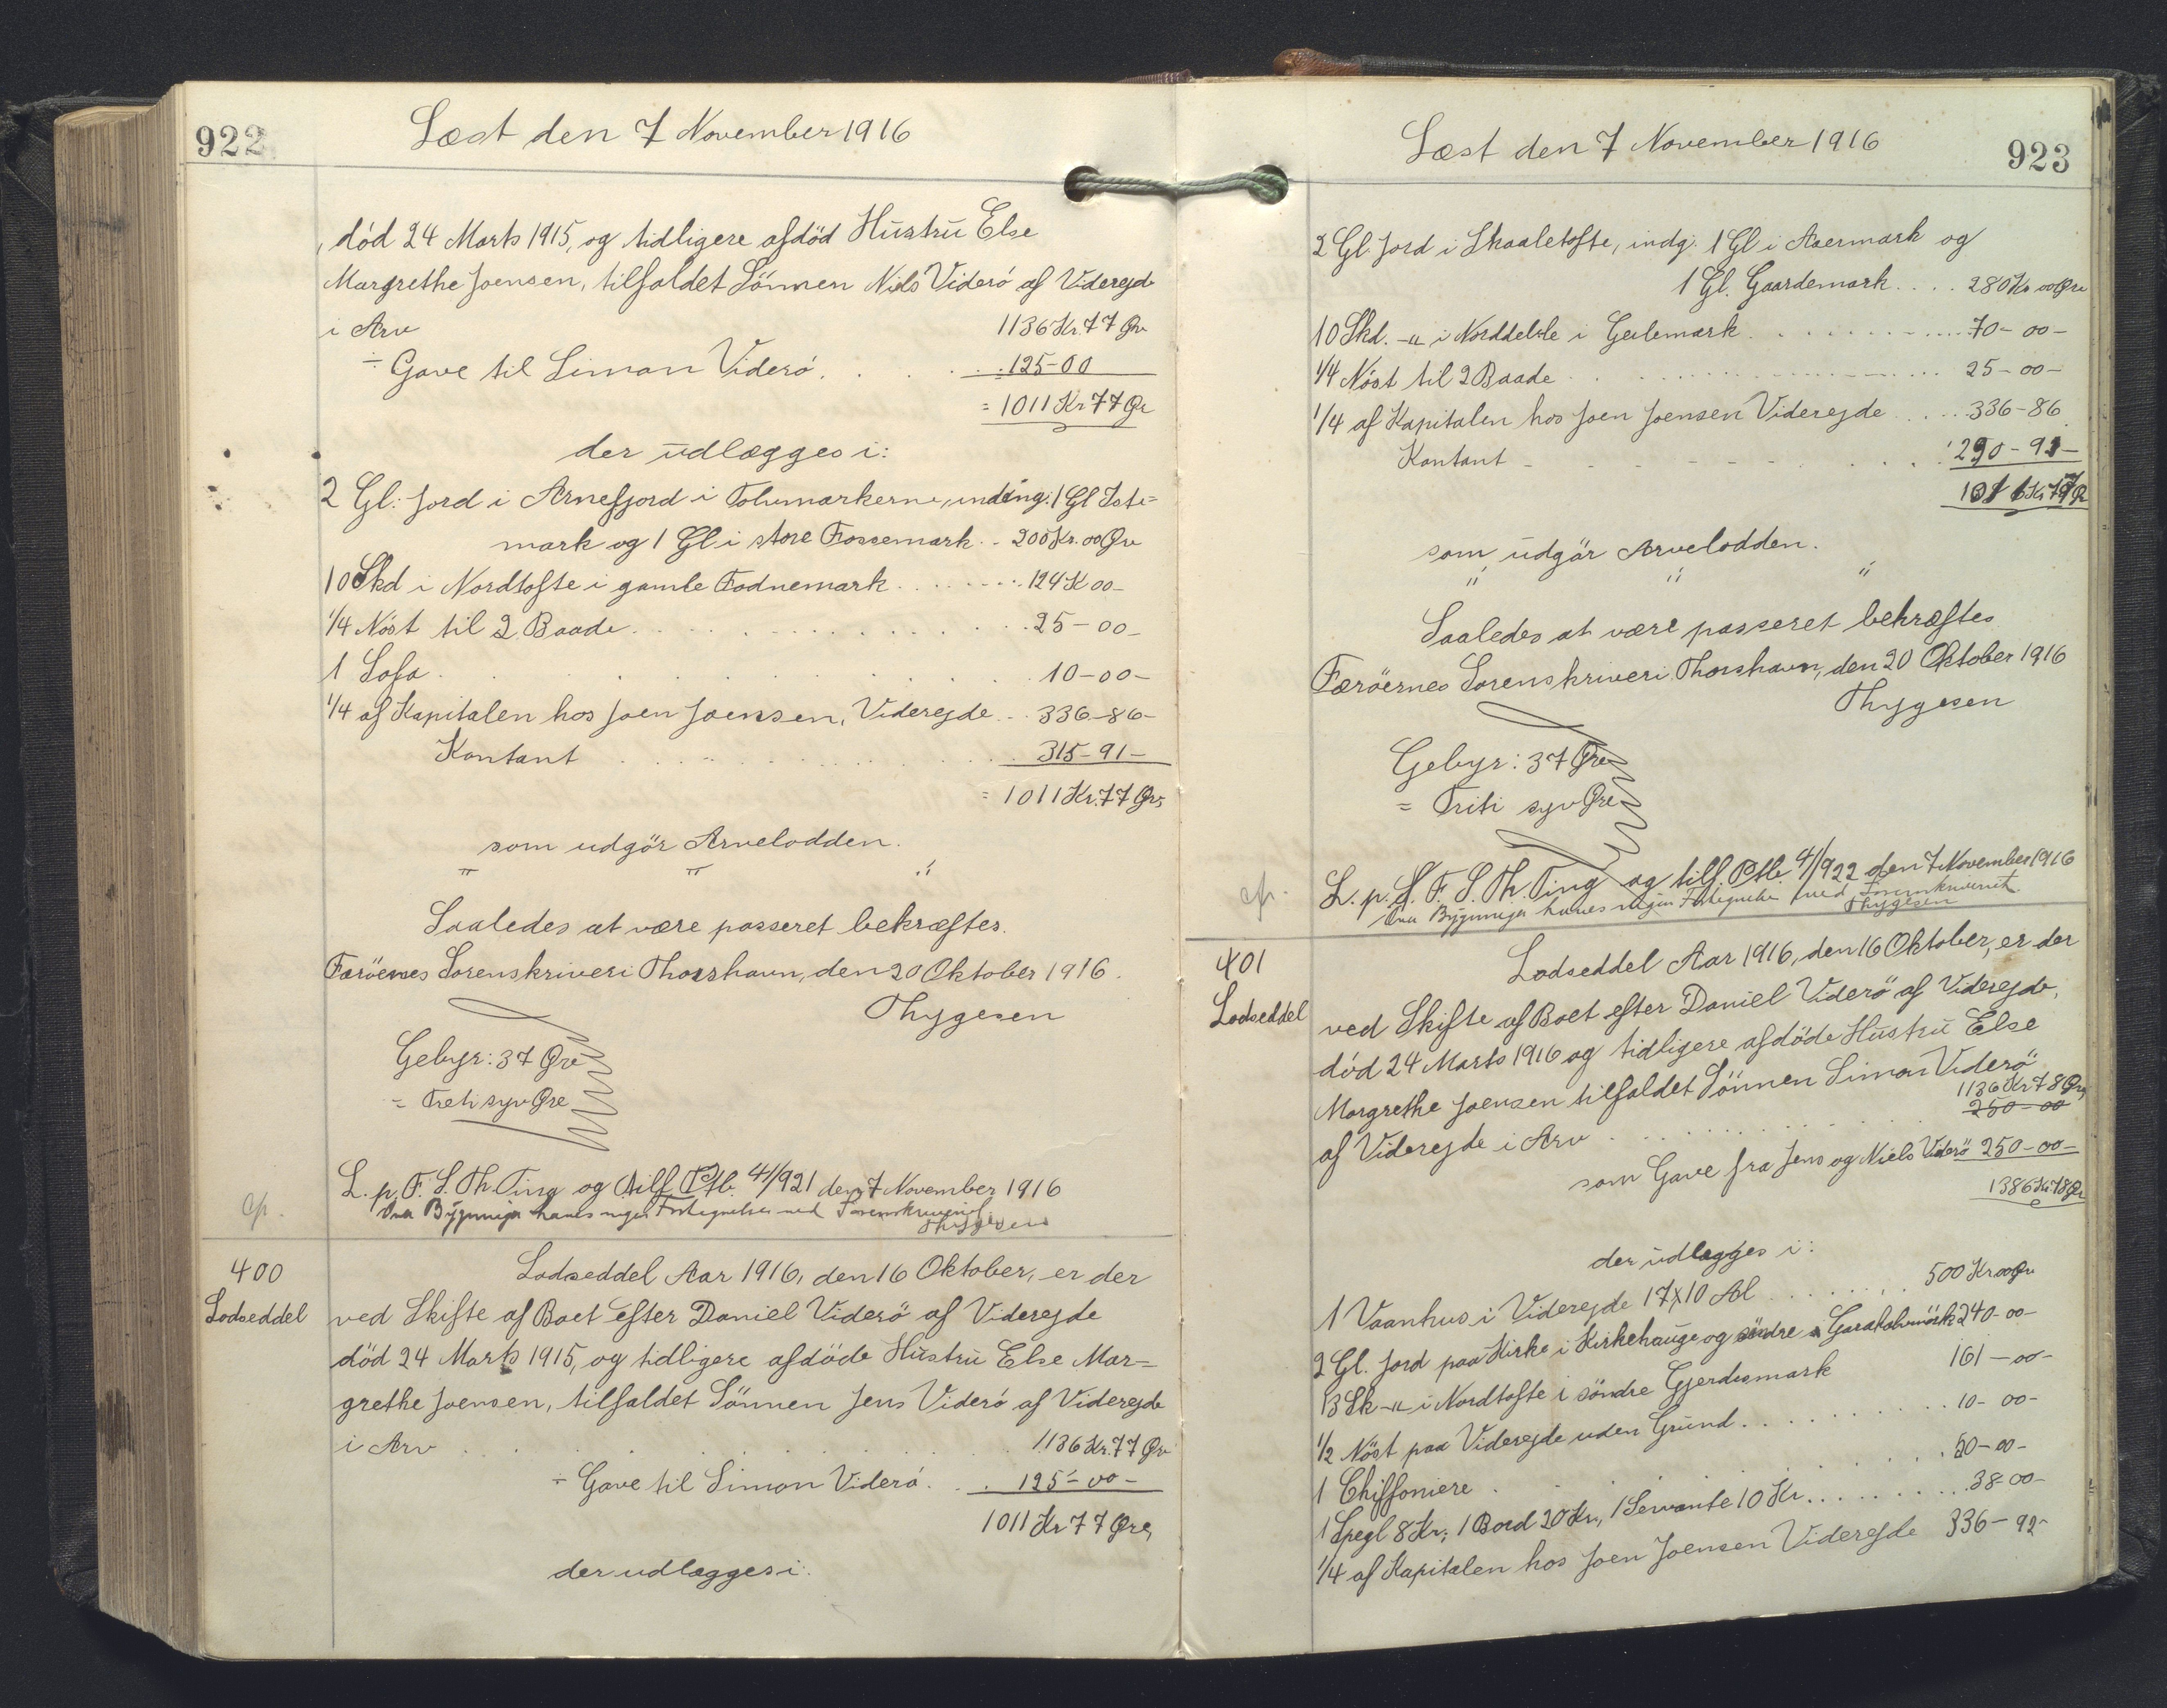 922
Læst den 7 November 1916
, död 24 Marts 1915, og tidligere afdöd Hustru Else
Margrethe Joensen, tilfaldet Sönnen Niels Viderö af Viderejde
i Arv 1136 Kr. 77 Øre
÷ Gave til Simon Viderö. . . . 125-00
= 1011 Kr 77 Øre
der udlægges i:
2 Gl: Jord i Arnefjord i Tolvmarkerne, inding: 1 Gl Iste=
mark og 1 Gl i store Fossemark. . 200 Kr. 00 Øre
10 Skd i Nordtofte i gamle Fodnemark . . . . . 124 K 00-
1/4 Nöst til 2 Baade. . . . . . 25-00-
1 Sofa . . . . . . 10-00-
1/4 af Kapitalen hos Joen Joensen, Viderejde . . 336-86-
Kontant . . . . . 315-91-
= 1011 Kr. 77 Øre,
som udgör Arvelodden.
" " "
Saaledes at være passeret bekræftes.
Færöernes Sorenskriveri Thorshavn, den 20 Oktober 1916.
Thygesen
Gebyr: 37 Øre
= Treti syv Øre
L. p. F. S. Th. Ting og tilf. Ptb. 41/921 den 7 November 1916
cfr. Over Bygninger haves ingen Fortegnelse ved Sorenskriveriet
Thygesen
400
Lodseddel
Lodseddel Aar 1916, den 16 Oktober, er der
ved Skifte af Boet efter Daniel Viderö af Viderejde
död 24 Marts 1915, og tidligere afdöde Hustru Else Mar=
grethe Joensen, tilfaldet Sönnen Jens Viderö af Viderejde
i Arv . . . . . . 1136 Kr. 77 Øre
÷ Gave til Simon Viderö. . . 125-00-
1011 Kr 77 Øre,
der udlægges i:
Læst den 7 November 1916
923
2 Gl. Jord i Skaaletofte, indg: 1 Gl i Aaermark og
1 Gl. Gaardemark . . . . 280 Kr 00 Øre
10 Skd. -"- i Norddelsle i Geilemark . . . . . 70-00-
1/4 Nöst til 2 Baade . . . . . 25-00-
1/4 af Kapitalen hos Joen Joensen Viderejde . . . . 336-86
Kontant - - - - - . . . 290-91-
1011 Kr 77 Øre
som udgör Arvelodden.
" " "
Saaledes at være passeret bekræftes
Færöernes Sorenskriveri Thorshavn, den 20 Oktober 1916
Thygesen
Gebyr: 37 Øre
= Triti syv Øre
L. p. S. F. S. Th. Ting og tilf. Ptb 41/922 den 7 November 1916
cfr. Over Bygninger haves ingen Fortegnelse ved Sorenskriveriet
Thygesen
401
Lodseddel
Lodseddel Aar 1916, den 16 Oktober, er der
ved Skifte af Boet efter Daniel Viderö af Viderejde,
död 24 Marts 1916 og tidligere afdöde Hustru Else
Margrethe Joensen tilfaldet Sönnen Simon Viderö
af Viderejde i Arv . . . . . . 1136 Kr 78 Øre,
250-00
som Gave fra Jens og Niels Viderö 250-00-
1386 Kr. 78 Øre
der udlægges i:
1 Vaanhus i Viderejde 17x10 Al . . . . . . 500 Kr 00 Øre
2 Gl. Jord paa Kirke i Kirkehauge og söndre 240-00-
13 Sk -"- i Nordtofte i söndre Gjerdesmark 161-00-
1/2 Nöst paa Viderejde uden Grund . . . . . 10-00-
1 Chiffoniere . . . . . . 50-00-
1 Spegl 8 Kr; 1 Bord 20 Kr, 1 Servante 10 Kr . . . . . 38-00-
1/4 af Kapitalen hos Joen Joensen Viderejde 336-92-